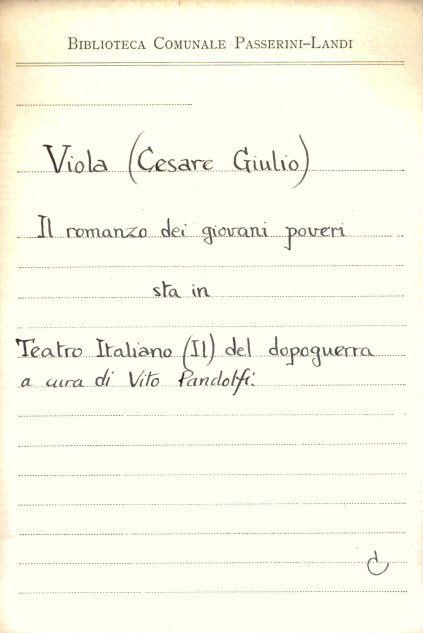 Biblioteca Comunale Passerini-Landi
Viola (Cesare Giulio)
Il romanzo dei giovani poveri
sta in
Teatro Italiano (Il) del dopoguerra
a cura di Vito Pandolfi.